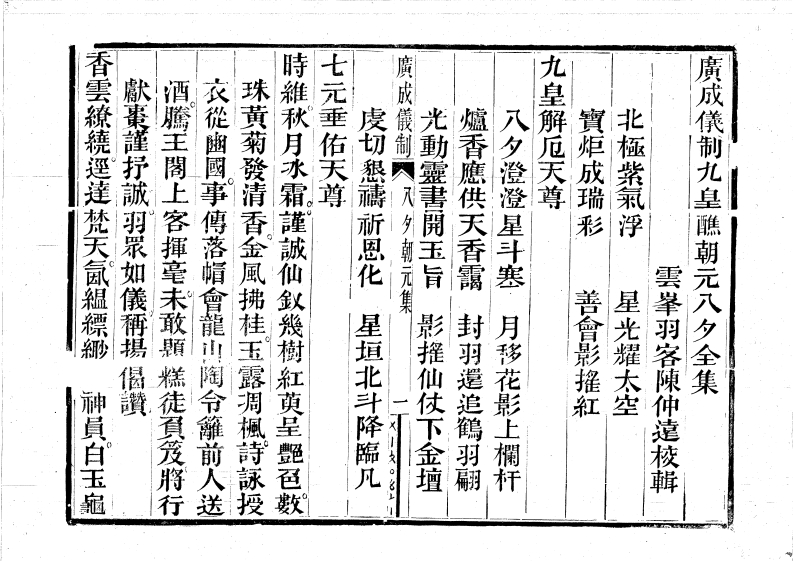 廣成儀制九皇醮朝元八夕全集
雲峯羽客陳仲遠校輯
北極紫氣浮　星光耀太空
寶炬成瑞彩　善會影搖紅
九皇解厄天尊
八夕澄澄星斗寒　月移花影上欄杆
爐香應供天香靄　封羽還追鶴羽翩
光動靈書開玉旨　影搖仙仗下金壇
廣成儀制　八夕朝元集　一
虔切懇禱祈恩化　星垣北斗降臨凡
七元垂佑天尊
時維秋月氷霜。謹誠仙釵幾樹紅萸呈艷色數
珠黃菊發清香。金風拂桂。玉露凋楓。詩詠授
衣從豳國。事傳落帽會龍山陶令籬前人送
酒。騰王閣上客揮毫。未敢題糕徒負笈將行
獻棗謹抒誠。羽眾如儀稱揚偈讚
香雲繚繞。逕達梵天氤氳縹緲　神員白玉龜